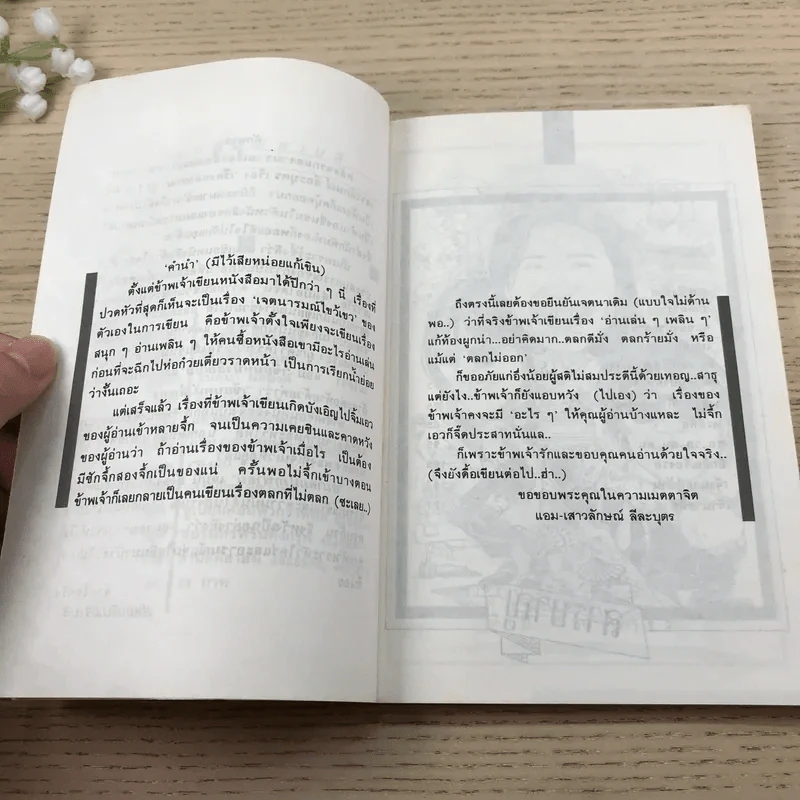 'คำนำ' (มีไว้เสียหน่อยแก้เขิน)
ตั้งแต่ข้าพเจ้าเขียนหนังสือมาได้ปีกว่า ๆ นี่ เรื่องที่
ปวดหัวที่สุดก็เห็นจะเป็นเรื่อง 'เจตนารมณ์ไขว้เขว' ของ
ตัวเองในการเขียน คือข้าพเจ้าตั้งใจเพียงจะเขียนเรื่อง
สนุก ๆ อ่านเพลิน ๆ ให้คนซื้อหนังสือเขามีอะไรอ่านเล่น
ก่อนที่จะฉีกไปห่อก๋วยเตี๋ยวราดหน้า เป็นการเรียกน้ำย่อย
ว่างั้นเถอะ
แต่เสร็จแล้ว เรื่องที่ข้าพเจ้าเขียนเกิดบังเอิญไปจิ้มเอว
ของผู้อ่านเข้าหลายจึ้ก จนเป็นความเคยชินและคาดหวัง
ของผู้อ่านว่า ถ้าอ่านเรื่องของข้าพเจ้าเมื่อไร เป็นต้อง
มีซักจึ้กสองจึ้กเป็นของแน่ ครั้นพอไม่จึ้กเข้าบางตอน
ข้าพเจ้าก็เลยกลายเป็นคนเขียนเรื่องตลกที่ไม่ตลก (ซะเลย..)
ถึงตรงนี้เลยต้องขอยืนยันเจตนาเดิม (แบบใจไม่ด้าน
พอ..) ว่าที่จริงข้าพเจ้าเขียนเรื่อง 'อ่านเล่น ๆ เพลิน ๆ'
แก้ท้องผูกน่า...อย่าคิดมาก..ตลกดีมั่ง ตลกร้ายมั่ง หรือ
แม้แต่ 'ตลกไม่ออก'
ก็ขออภัยแก่อึ่งน้อยผู้สติไม่สมประดีนี้ด้วยเทพญ..สาธุ
แต่ยังไง..ข้าพเจ้าก็ยังแอบหวัง (ไปเอง) ว่า เรื่องของ
ข้าพเจ้าคงจะมี 'อะไร ๆ' ให้คุณผู้อ่านบ้างแหละ ไม่จึ้ก
เอวก็จี๊ดประสาทนั่นแล..
ก็เพราะข้าพเจ้ารักและขอบคุณคนอ่านด้วยใจจริง..
(จึงยังดื้อเขียนต่อไป..ฮ่า..)
ขอขอบพระคุณในความเมตตาจิต
แอม-เสาวลักษณ์ ลีละบุตร
สารบาญ